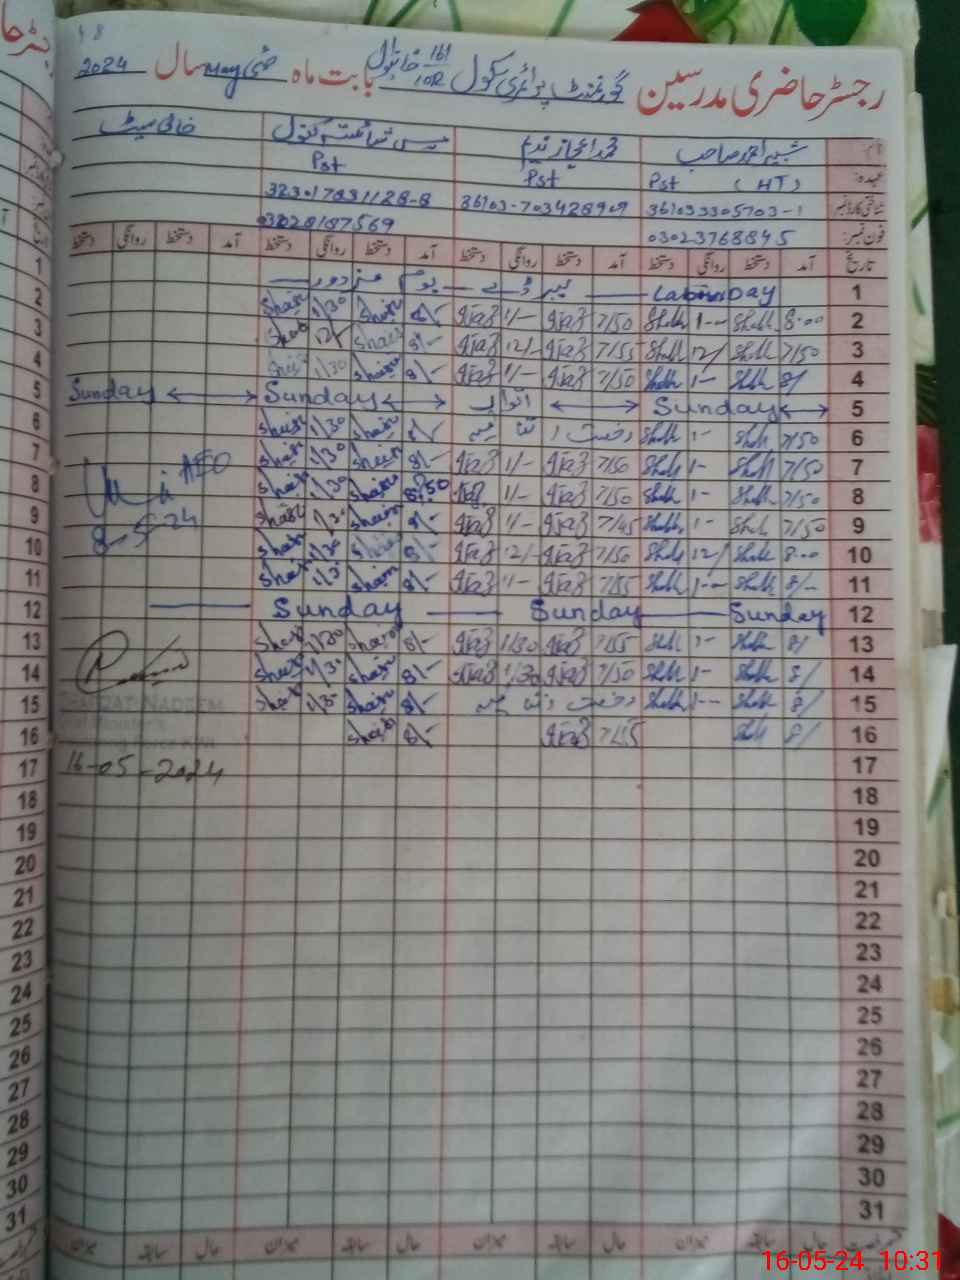 رجسٹر حاضری مدرسین گورنمنٹ پرائمری سکول 161/10R خانیوال بابت ماہ مئی May سال 2024
نام شبیر احمد صاحب محمد اعجاز ندیم مس شائستہ کنول خالی سیٹ
عہدہ Pst (HT) Pst Pst
شناختی کارڈ نمبر 361033305703-1 36103-703428909 323017831128-8
فون نمبر: 03023768845 03028187569
تاریخ آمد دستخط روانگی دستخط آمد دستخط روانگی دستخط آمد دستخط روانگی دستخط آمد دستخط روانگی دستخط
1 Labour Day لیبر ڈے یوم مزدور
2 8:00 Shabb 1-- Shabb 7/50 Ijaz 1/- Ijaz 8/- Shais 1/30 Shais
3 7/50 Shabb 12/ Shabb 7/55 Ijaz 12/- Ijaz 8/- Shais 12/ Shais
4 8/ Shabb 1- Shabb 7/50 Ijaz 1/- Ijaz 8/- Shais 1/30 Shais
5 Sunday اتوار Sunday Sunday
6 7/50 Shabb 1- Shabb رخصت اتفاقیہ 8/- Shais 1/30 Shais
7 7/50 Shabb 1- Shabb 7/50 Ijaz 1/- Ijaz 8/- Shais 1/30 Shais
8 7/50 Shabb 1- Shabb 7/50 Ijaz 1/- Ijaz 8:50 Shais 1/30 Shais
9 7/50 Shabb 1- Shabb 7/45 Ijaz 1/- Ijaz 8/- Shais 1/30 Shais
10 8:00 Shabb 12/ Shabb 7/50 Ijaz 12/- Ijaz 8/- Shais 1/30 Shais
11 8/- Shabb 1-- Shabb 7/55 Ijaz 1/- Ijaz 8/- Shais 1/3 Shais
12 Sunday Sunday Sunday
13 8/ Shabb 1- Shabb 7/55 Ijaz 1/30 Ijaz 8/- Shais 1/30 Shais
14 8/ Shabb 1- Shabb 7/50 Ijaz 1/30 Ijaz 8/- Shais 1/30 Shais
15 8/ Shabb 1-- Shabb رخصت اتفاقیہ 8/- Shais 1/30 Shais
16 8/ Shabb 7/55 Ijaz 8/- Shais
AEO
8-5-24
SHAFQAT NADEEM
16-05-2024
17
18
19
20
21
22
23
24
25
26
27
28
29
30
31
حال سابقہ میزان حال سابقہ میزان حال سابقہ میزان حال سابقہ میزان
16-05-24 10:31